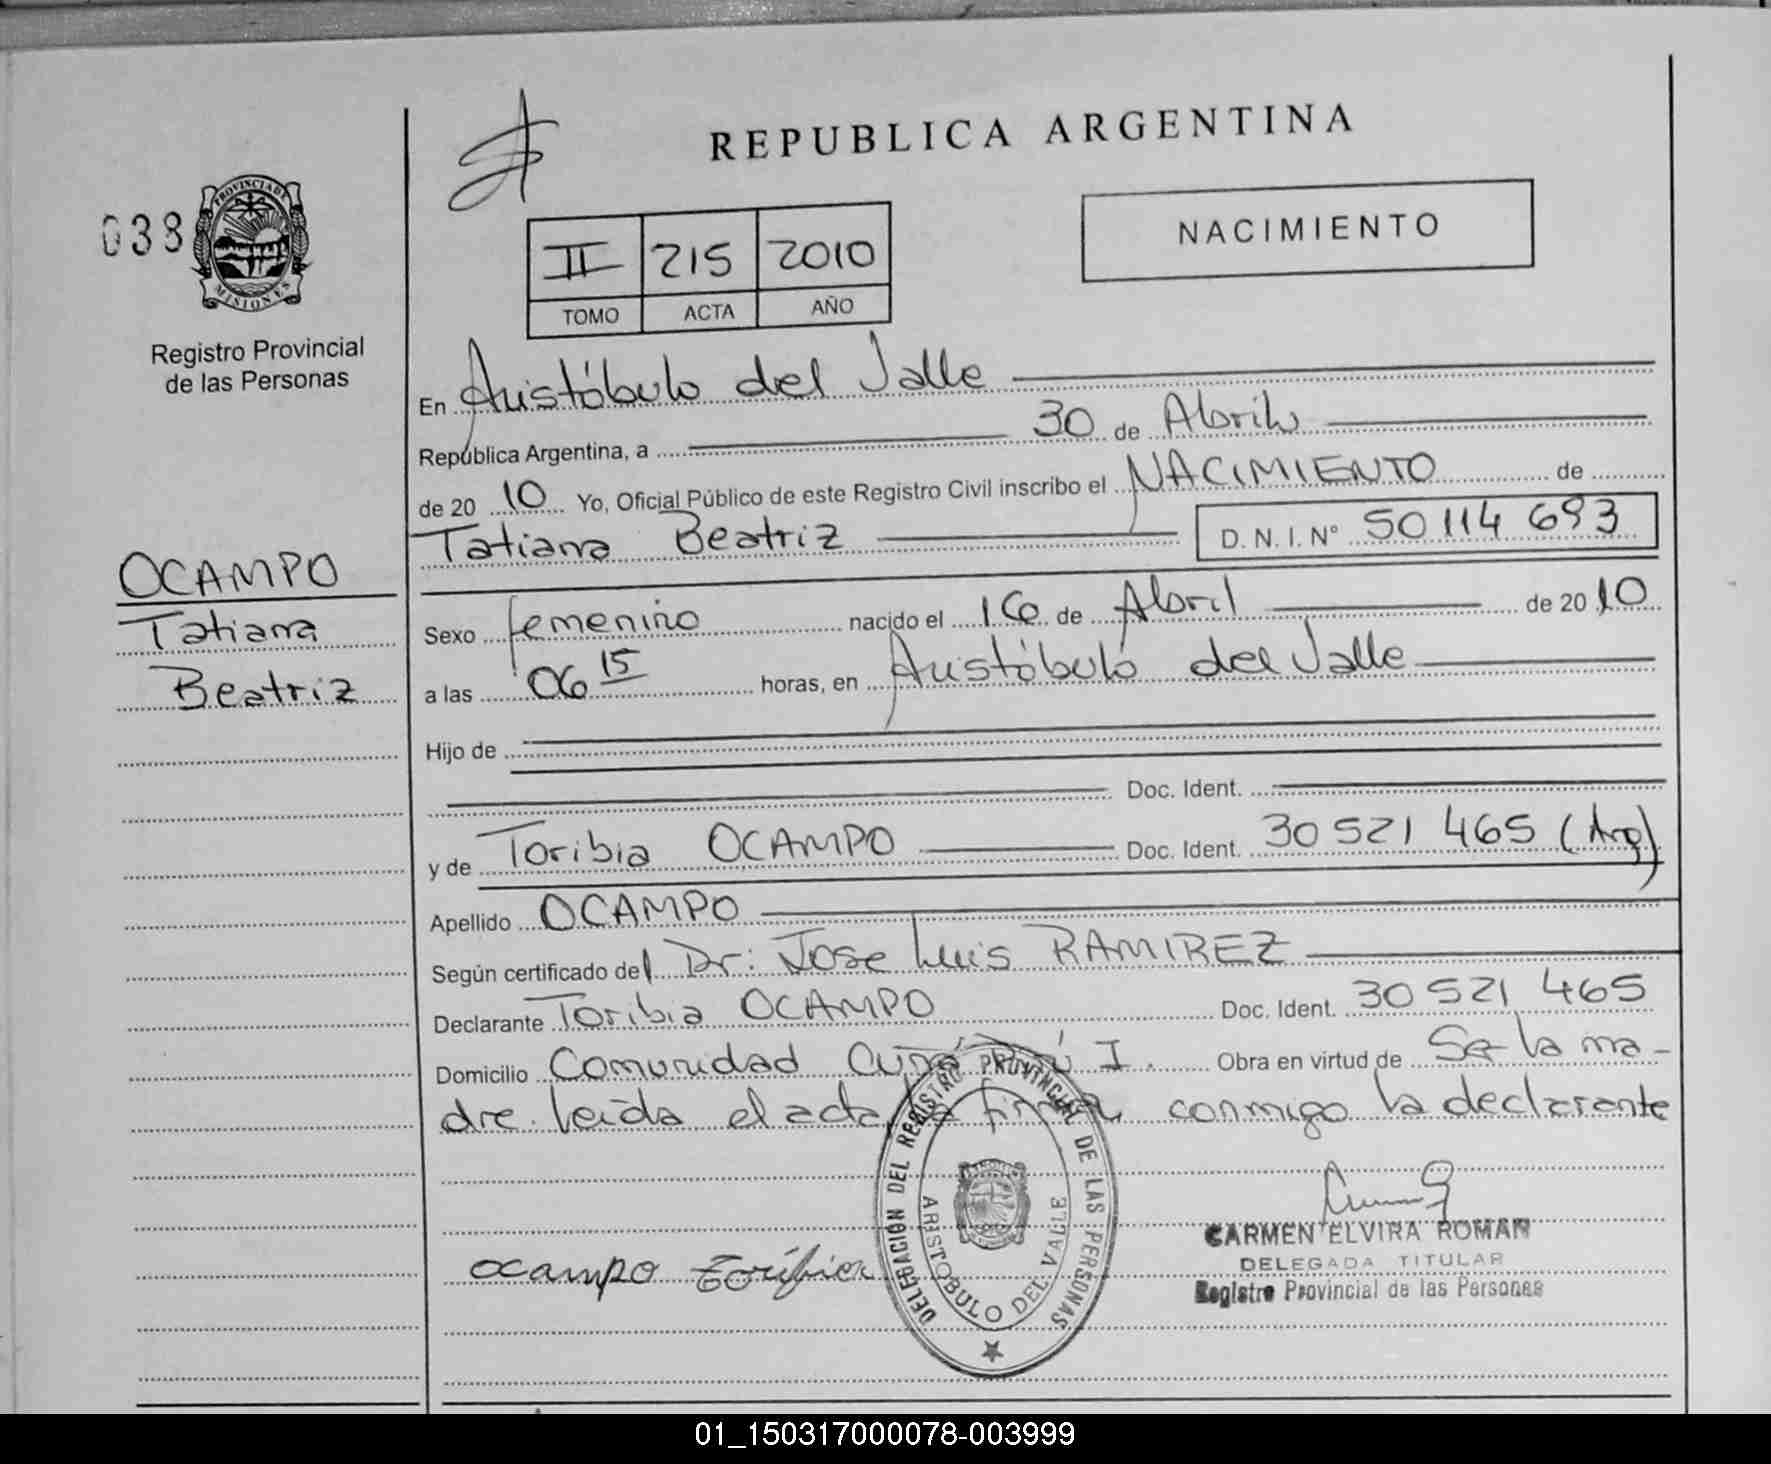 REPUBLICA ARGENTINA
038
PROVINCIA DE
MISIONES
Registro Provincial
de las Personas
II 215 2010
TOMO ACTA AÑO
NACIMIENTO
En Aristóbulo del Valle
República Argentina, a 30 de Abril
de 20 10 Yo, Oficial Público de este Registro Civil inscribo el NACIMIENTO de
Tatiana Beatriz D.N.I. Nº 50 114 693
OCAMPO
Tatiana
Beatriz
Sexo femenino nacido el 16 de Abril de 20 10
a las 06 15 horas, en Aristóbulo del Valle
Hijo de
Doc. Ident.
y de Toribia OCAMPO Doc. Ident. 30 521 465 (Arg)
Apellido OCAMPO
Según certificado del Dr: Jose Luis RAMIREZ
Declarante Toribia OCAMPO Doc. Ident. 30 521 465
Domicilio Comunidad I. Obra en virtud de Ser la ma-
dre. leída el acta, la firma conmigo la declarante
DELEGACION DEL REGISTRO PROVINCIAL DE LAS PERSONAS
ARISTOBULO DEL VALLE
ocampo
CARMEN ELVIRA ROMAN
DELEGADA TITULAR
Registro Provincial de las Personas
01_150317000078-003999